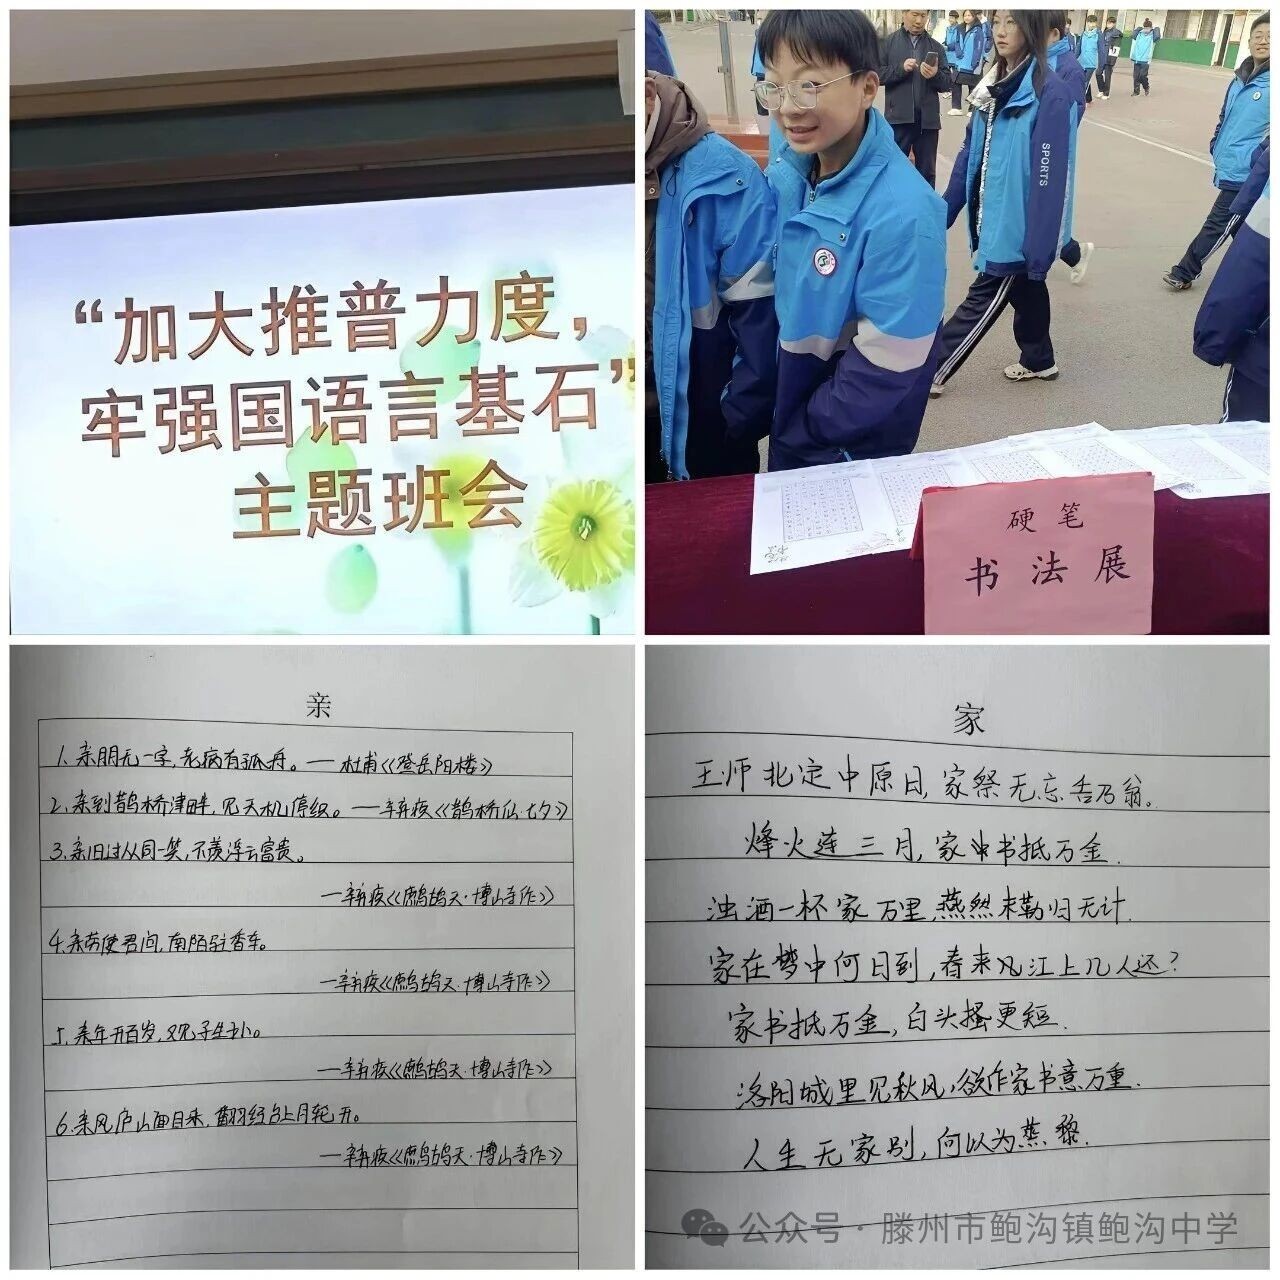 “加大推普力度，
牢强国语言基石”
主题班会
SPORTS
硬笔
书法展
亲
1. 亲朋无一字，老病有孤舟。——杜甫《登岳阳楼》
2. 亲到鹊桥津畔，见天机停织。——辛弃疾《鹊桥仙·七夕》
3. 亲旧过从同一笑，不羡浮云富贵。
——辛弃疾《鹧鸪天·博山寺作》
4. 亲劳使君问，南陌驻香车。
——辛弃疾《鹧鸪天·博山寺作》
5. 亲年开百岁，又见子生孙。
——辛弃疾《鹧鸪天·博山寺作》
6. 亲风庐山面目来，
——辛弃疾《鹧鸪天·博山寺作》
家
王师北定中原日，家祭无忘告乃翁。
烽火连三月，家书抵万金.
浊酒一杯家万里，燕然未勒归无计.
家在梦中何日到，春来江上几人还？
家书抵万金，白头搔更短.
洛阳城里见秋风，欲作家书意万重.
人生无家别，何以为蒸黎.
公众号·滕州市鲍沟镇鲍沟中学